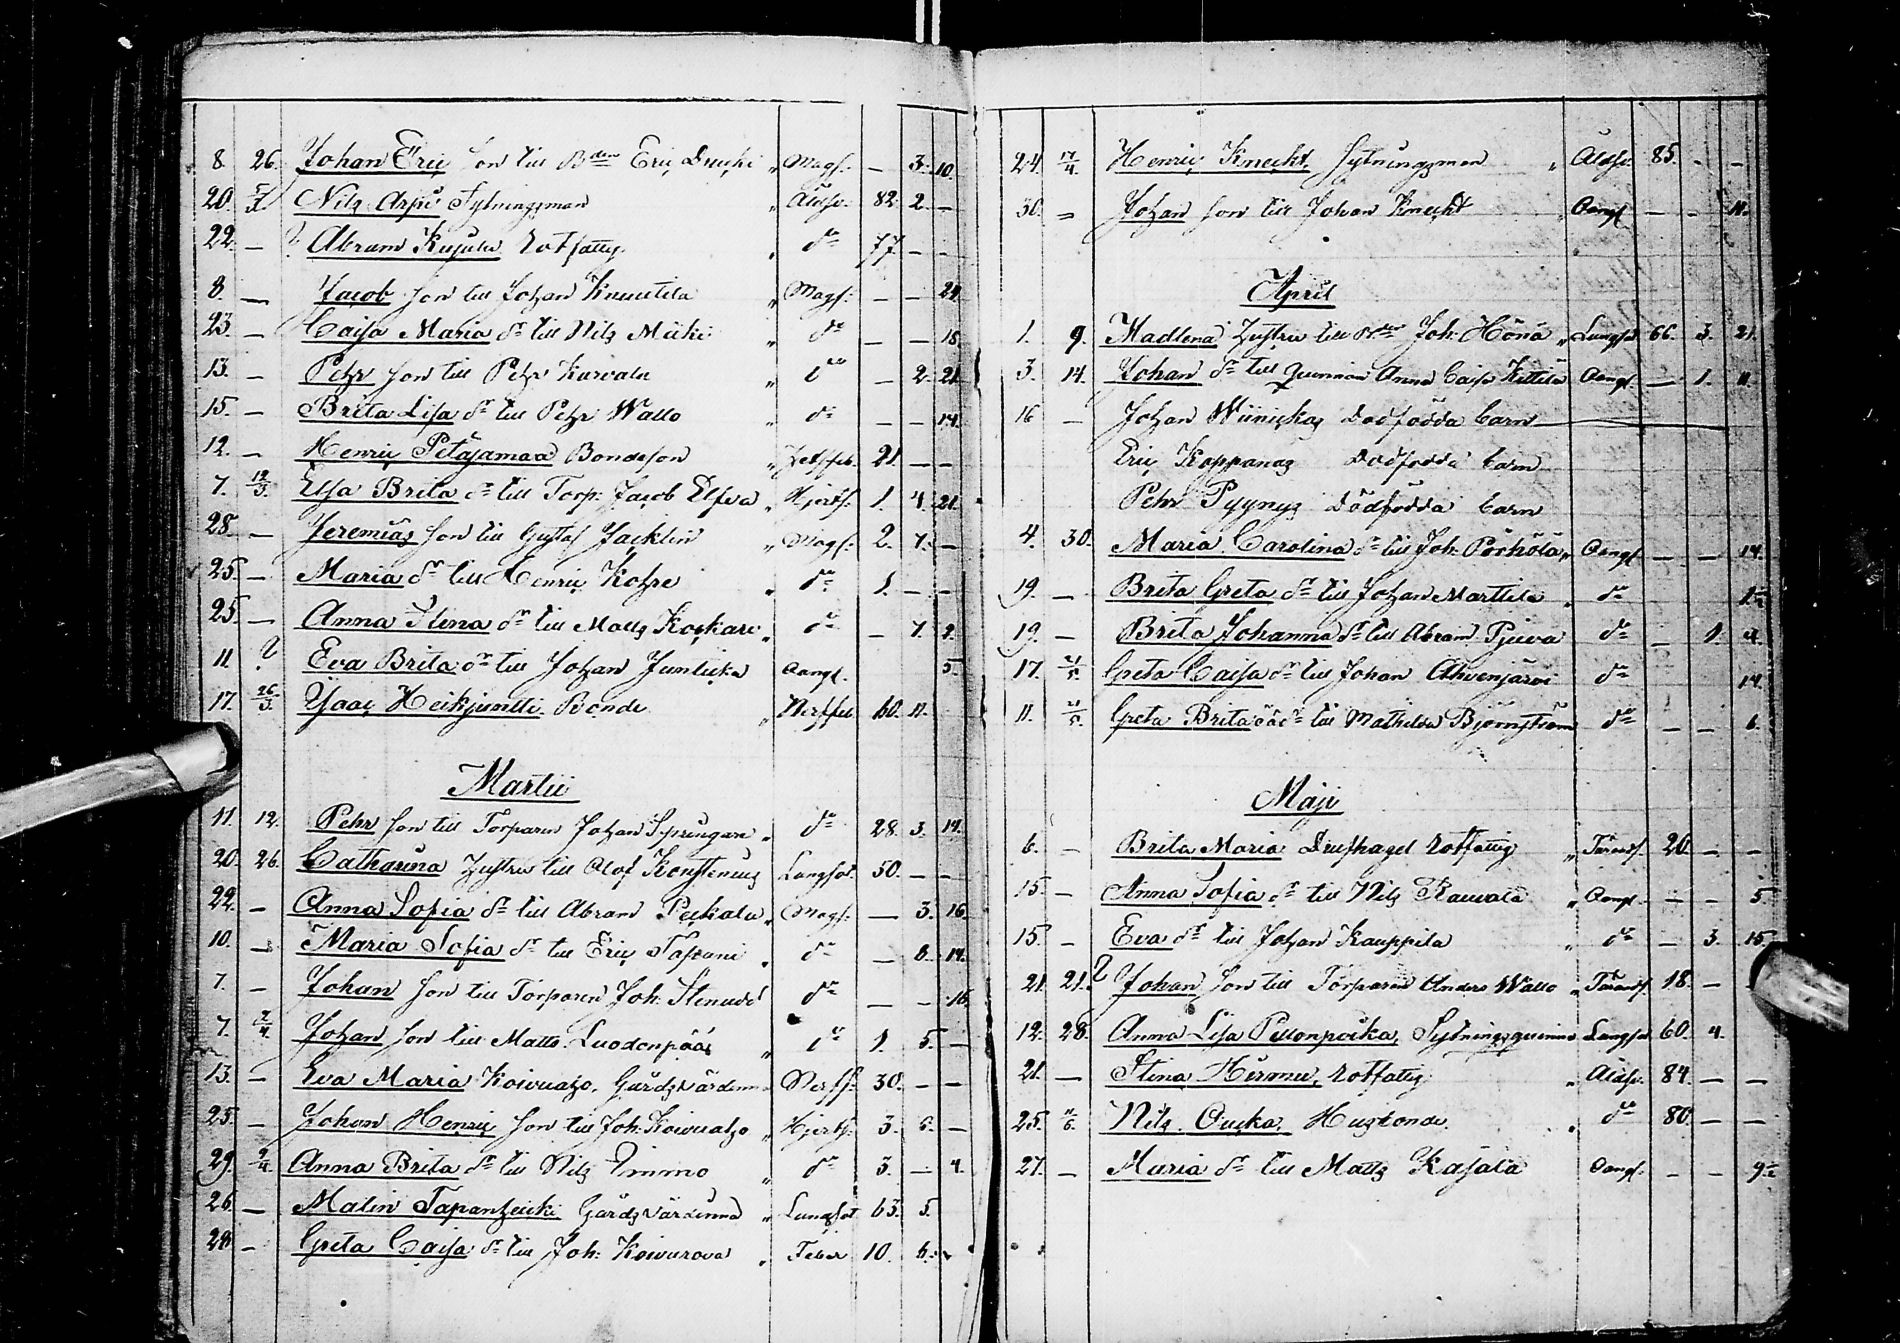 8. 26. Johan Eric son till Bden Eric Drucki " Magf. — 3. 10.
20. 5/3. Nils Arpi Sytningsman " Åldsr. 82. 2. —
22. — ? Abram Kujala Rotfattig " do 77. — —
8. — Jacob son till Johan Kuuttila " Magf. — — 24.
23. — Caisa Maria dr till Nils Mäki " do — — 18.
13. — Pehr son till Pehr Karvala " do — 2. 21.
15. — Brita Lisa dr till Pehr Wallo " do — — 14.
12. — Henric Petäjamaa Bondeson " 21. — —
7. 12/3. Elsa Brita dr till Torp. Jacob Elfva " Hjertf. 1. 4. 21.
28. — Jeremias son till Gustaf Jacklin " Magf. 2. 7. —
25. — Maria dr till Henric Kohre " do 1. — —
25. — Anna Stina dr till Matts Koskari " do — 7. 2.
11. ? Eva Brita dr till Johan Junticka Aangf. 5.
17. 26/3. Isaac Heikjuntti Bonde " Nerffeb. 60. 11.
Martii
11. 12. Pehr son till Torparen Johan Springare " do 28. 3. 14.
20. 26. Catharina Hustru till Olof Konstenius Lungsot. 50. — —
22. — Anna Sofia dr till Abram Peckala " Magf. — 3. 16.
10. — Maria Sofia dr till Eric Tapani " do — 6. 14.
7. — Johan son till Torparen Joh. Stenudd do — — 16.
7. 2/4. Johan son till Matts Luodonpää " do 1. 5. —
13. — Eva Maria Koivuaho, Gårdsvärdinna Nerff. 30. — —
25. — Johan Henric son till Joh. Koivuaho " Hjertf. 3. 6. —
29. 2/4. Anna Brita dr till Nils Timmo " do 3. — 4.
26. — Malin Tapanheicki Gårdsvärdinna " Lungsot 63. 5.
28. — Greta Caisa dr till Joh. Koivurova " Feber 10. 6.
24. 17/4. Henric Knecht, Sytningsman " Åldsr. 85. — —
30. — Johan son till Johan Knecht Aangf. — — 11.
April
1. 9. Madlena Hustru till Bden Joh. Hönä " Lungsot 66. 3. 21.
3. 14. Johan dr till Quinnan Anna Caisa Kittilä Aangf. — 1. 11.
16 — Johan Wiinickas Dödfödda barn
Eric Koppanas Dödfödda barn
Pehr Pyynys Dödfödda barn
4. 30. Maria Carolina dr till Joh. Pörhölä " Aangf. — — 14.
19. — Brita Greta dr till Johan Marttila " do 1/2
19. — Brita Johanna dr till Abram Pjiva do — 1. 4.
17. 21/5. Greta Caisa dr till Johan Ahvenjärvi do 14.
11. 21/5. Greta Brita oä dr till Mathilda Björnström do — — 6.
Maji
6. — Brita Maria Drufhagel Rotfattig " Tärandf. 20. — —
15. — Anna Sofia dr till Nils Rauvala " Aangf. — — 5.
15. — Eva dr till Johan Kauppila " do — 3. 15.
21. 21. ? Johan son till Torparen Anders Wallo " Tärandf. 18. —
12. 28. Anna Lisa Pellonpoika, Sytningsquinna Lungsot 60. 4.
21. — Stina Hirmu, Rotfattig " Åldsr. 84. — —
25. 11/6. Nils Oucka, Husbonde " do 80. — —
27. — Maria dr till Matts Kasala Aangf. — — 9 1/2